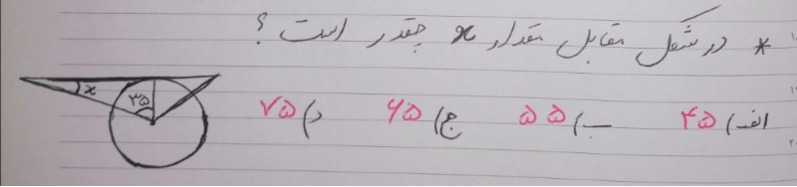 * در شکل مقابل مقدار x چقدر است ؟
الف) ۴۵ ب) ۵۵ ج) ۶۵ د) ۷۵
x
۳۵